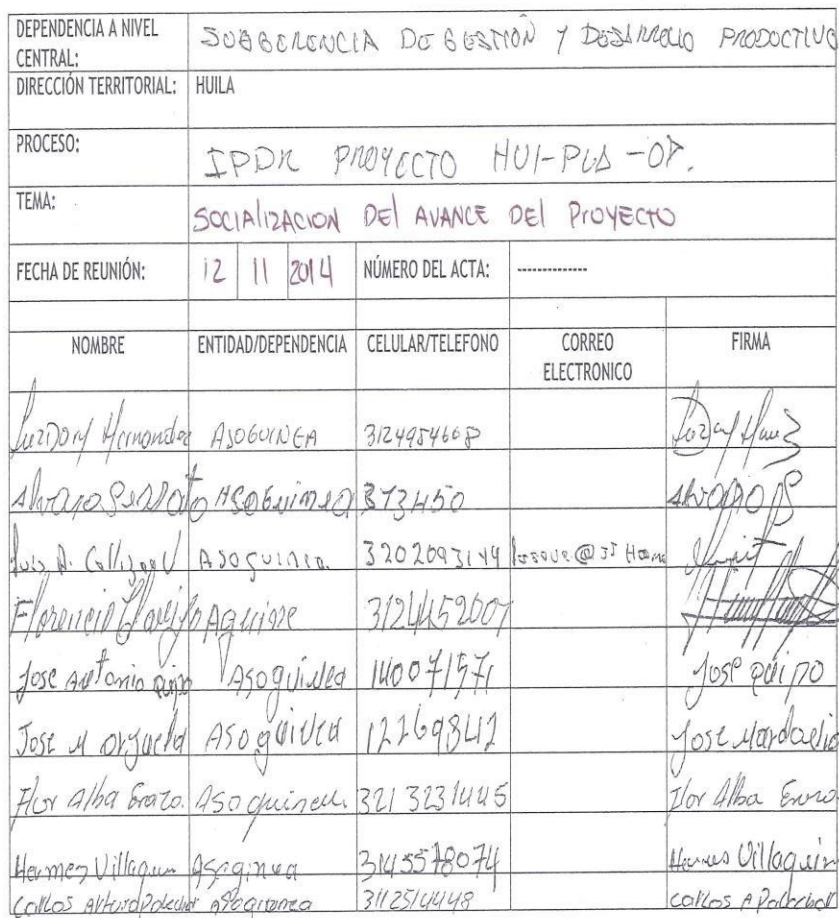 DEPENDENCIA A NIVEL CENTRAL: SUBGERENCIA DE GESTIÓN Y DESARROLLO PRODUCTIVO
DIRECCIÓN TERRITORIAL: HUILA
PROCESO: IPDR PROYECTO HUI-PLA-07.
TEMA: SOCIALIZACION DEL AVANCE DEL PROYECTO
FECHA DE REUNIÓN: 12 11 2014 NÚMERO DEL ACTA: --------------
NOMBRE ENTIDAD/DEPENDENCIA CELULAR/TELEFONO CORREO ELECTRONICO FIRMA
Luz Dory Hernandez ASOGUINEA 3124954668
Alvaro Asoguinea 373450 Alvaro
Luis A. Asoguinea 3202093149
Florencio 3124452007
Jose Antonio Quipo Asoguinea 140071571 Jose Quipo
Jose M Orjuela Asoguinea 12269842 Jose
Flor Alba Erazo. Asoguinea. 3213231445 Flor Alba Erazo.
Hermes Villaquin Asoginea 3143578074 Hermes Villaquin
Carlos Arturo Polechor Asoguinea 3112514448 Carlos A Polechor